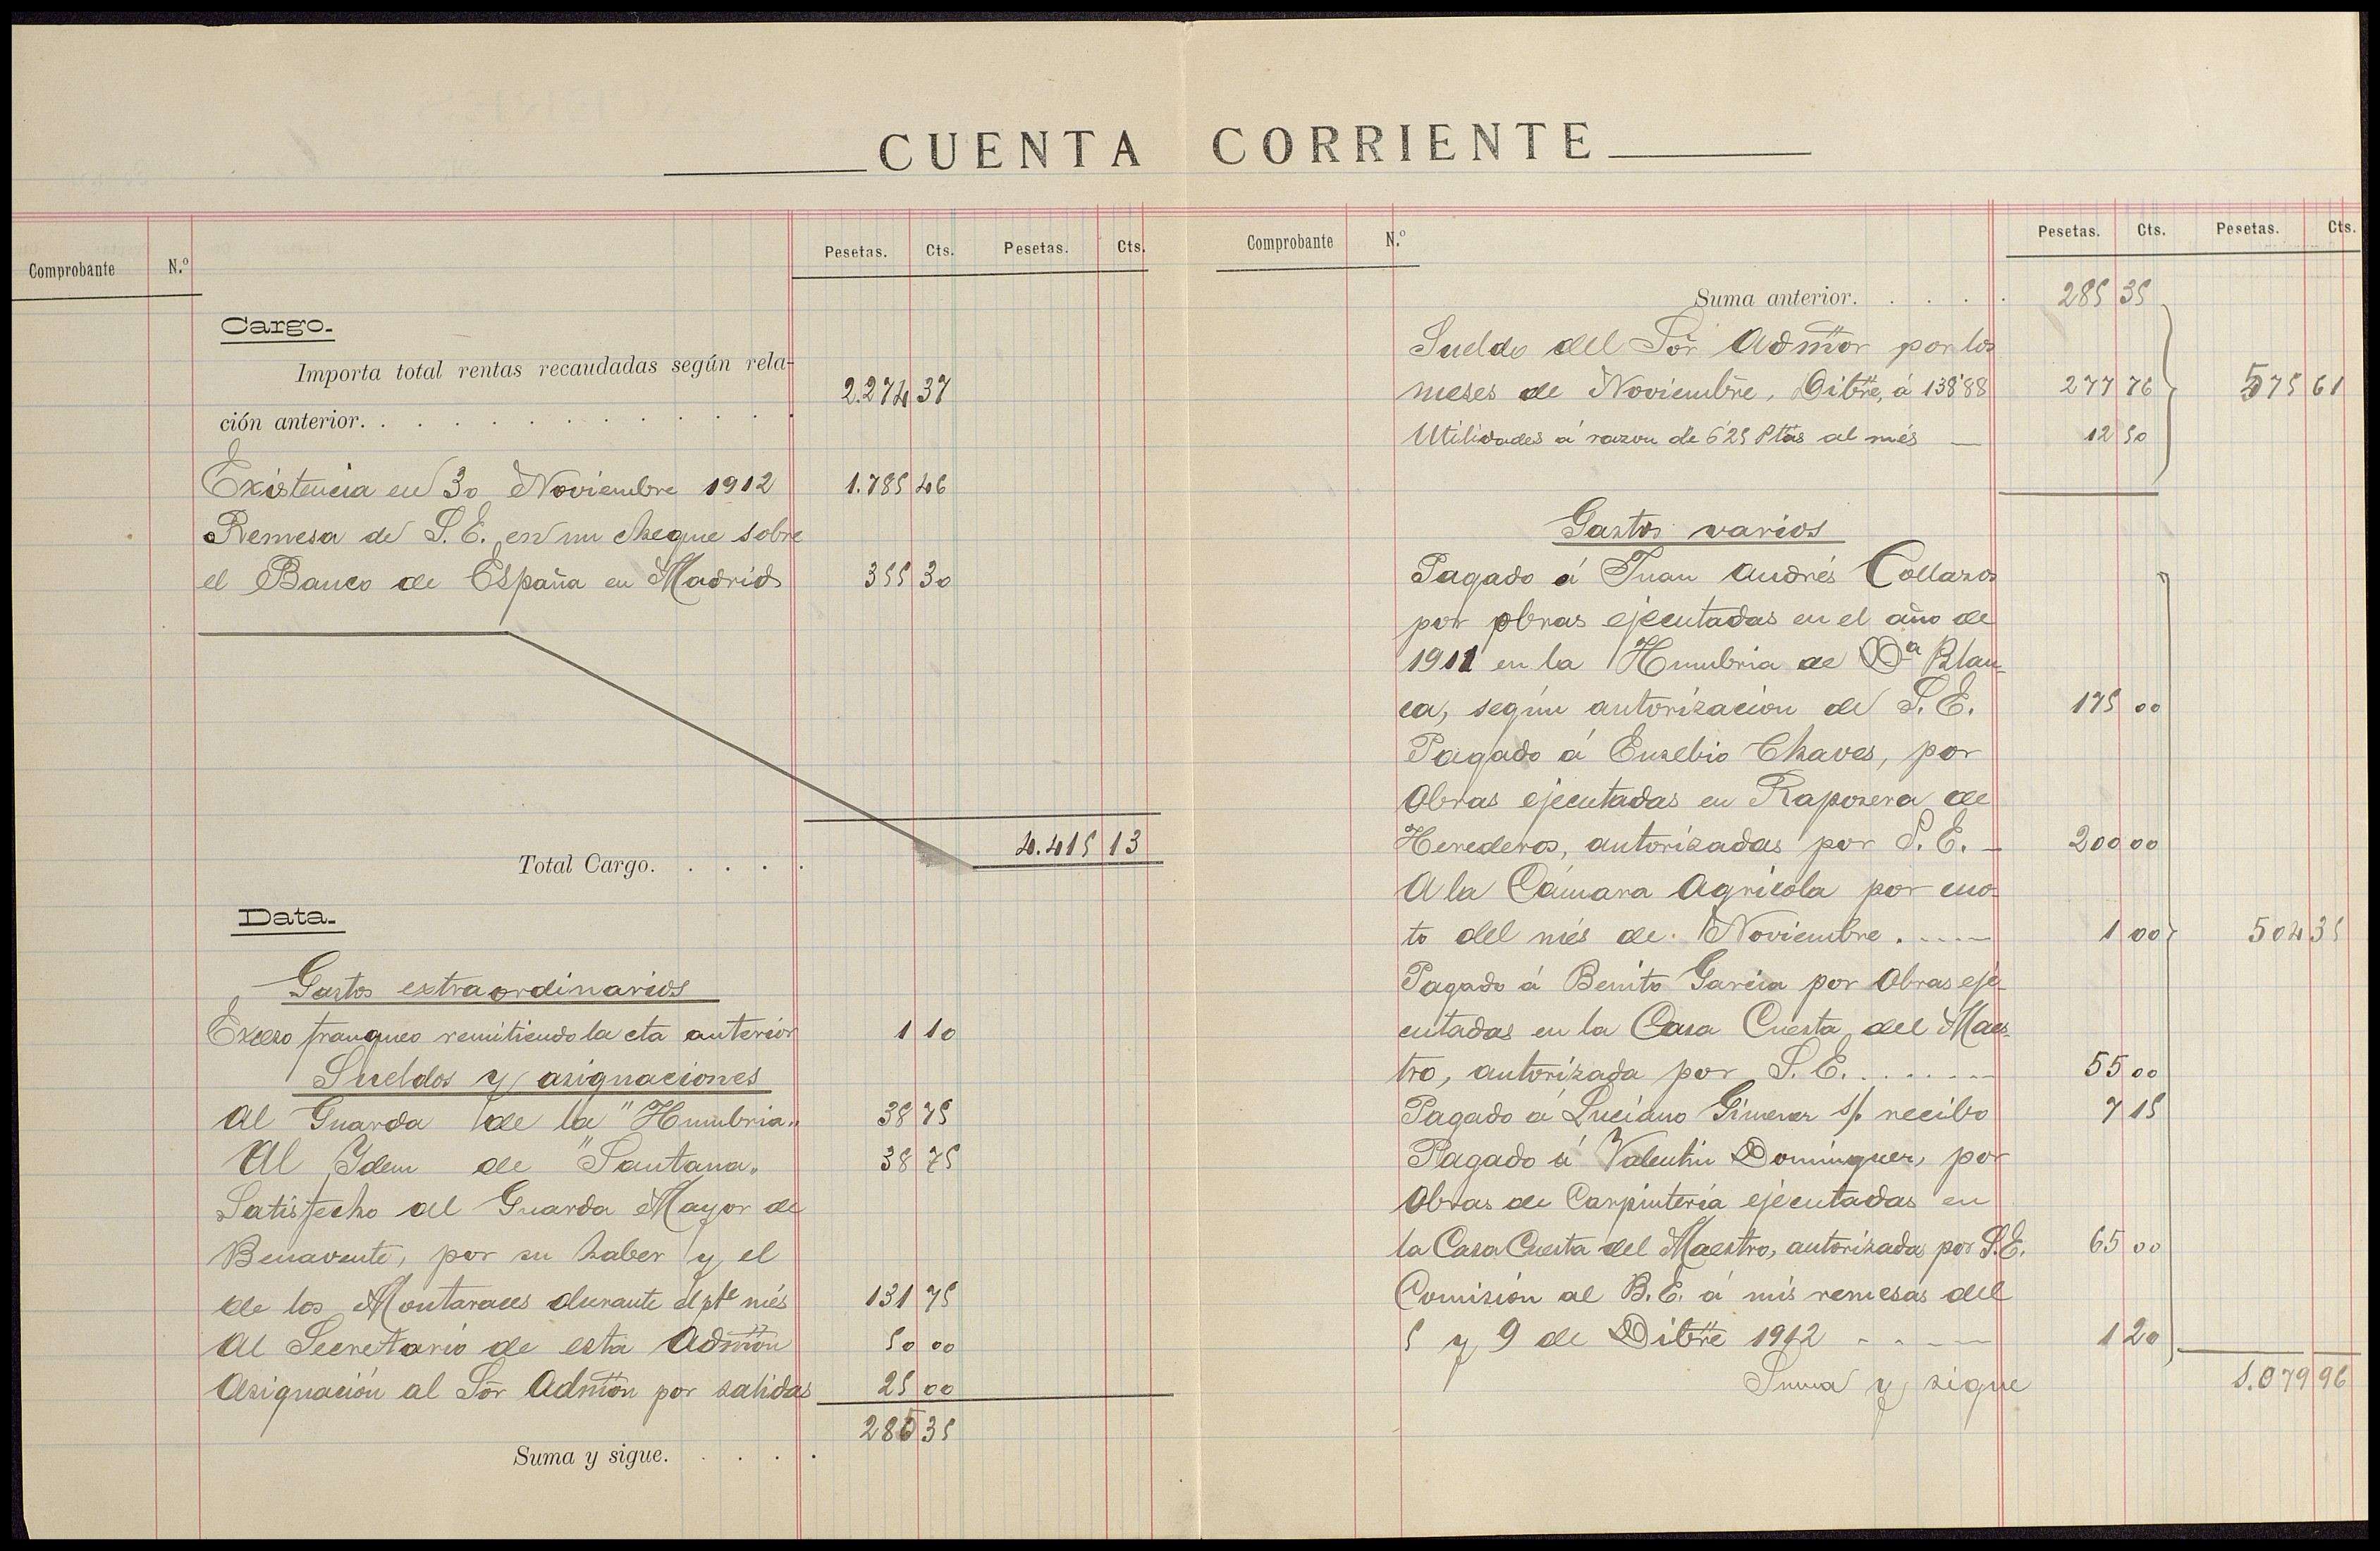 CUENTA CORRIENTE
Comprobante N.º Pesetas. Cts. Pesetas. Cts.
Cargo.
Importa total rentas recaudadas según rela-
ción anterior. 2.274 37
Existencia en 30 Noviembre 1912 1.785 46
Remesa de S.E. en un cheque sobre
el Banco de España en Madrid 355 30
Total Cargo. 4.415 13
Data.
Gastos extraordinarios
Exceso franqueo remitiendo la cta anterior 1 10
Sueldos y asignaciones
Al Guarda de la "Humbria" 38 75
Al Ydem de "Santana" 38 75
Satisfecho al Guarda Mayor de
Benavente, por su haber y el
de los Montaraces durante el pte més 131 75
Al Secretario de esta Admon 50 00
Asignación al Sor Admon por salidas 25 00
285 35
Suma y sigue.
Comprobante N.º Pesetas. Cts. Pesetas. Cts.
Suma anterior. 285 35
Sueldo del Sor Admor por los
meses de Noviembre, Dibre, á 138'88 277 76 575 61
Utilidades á razon de 6'25 Ptas al més 12 50
Gastos varios
Pagado á Juan Andrés Collazos
por obras ejecutadas en el año de
1911 en la Humbria de Dª Blan-
ca, según autorización de S.E. 175 00
Pagado á Eusebio Chaves, por
Obras ejecutadas en Raposera de
Herederos, autorizadas por S.E. 200 00
A la Cámara Agricola por cuo-
ta del més de Noviembre 1 00 504 35
Pagado á Benito Garcia por Obras eje-
cutadas en la Casa Cuesta del Maes-
tro, autorizada por S.E. 55 00
Pagado á Luciano Gimenez s/. recibo 7 15
Pagado á Valentin Dominguez, por
Obras de Carpinteria ejecutadas en
la Casa Cuesta del Maestro, autorizadas por S.E. 65 00
Comisión al B.E. á mis remesas del
5 y 9 de Dibre 1912 1 20
Suma y sigue 1.079 96